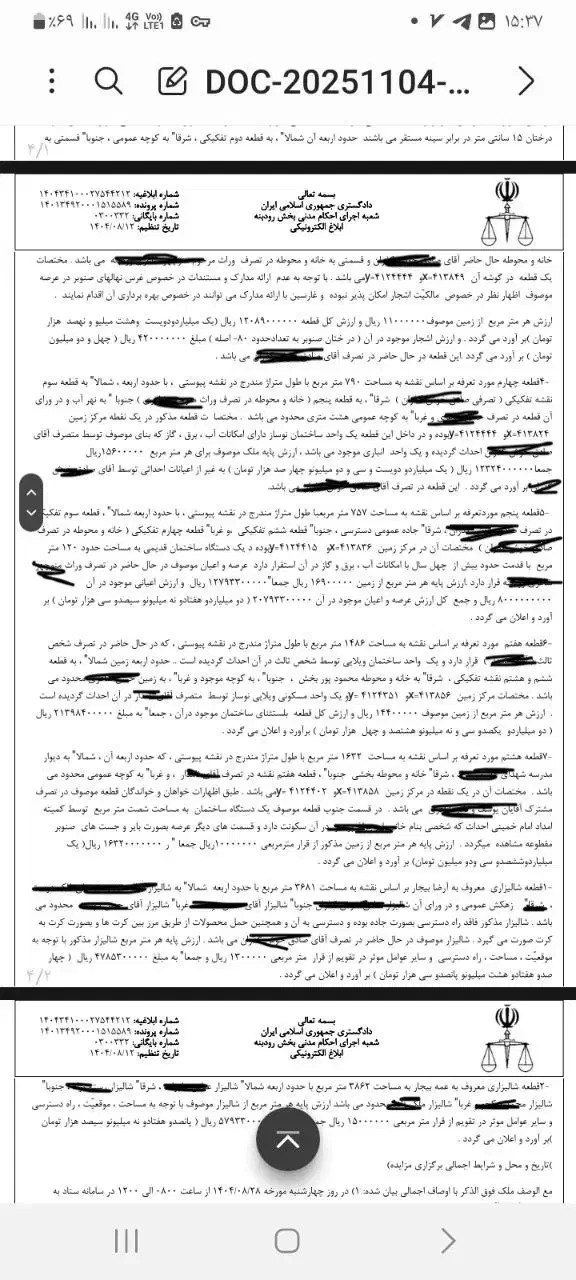 ۱۵:۳۷
٪۶۹
4G
Vo))
LTE1
DOC-20251104-...
درختان ۱۵ سانتی متر در برابر سینه مستقر می باشند حدود اربعه آن شمالا" ، به قطعه دوم تفکیکی ، شرقا" به کوچه عمومی ، جنوبا" قسمتی به
۴/۱
بسمه تعالی
دادگستری جمهوری اسلامی ایران
شعبه اجرای احکام مدنی بخش رودبنه
ابلاغ الکترونیکی
شماره ابلاغیه: ۱۴۰۴۳۴۱۰۰۰۲۷۵۴۴۲۱۲
شماره پرونده: ۱۴۰۱۳۴۹۲۰۰۰۱۵۱۵۵۸۹
شماره بایگانی: ۰۳۰۰۳۳۲
تاریخ تنظیم: ۱۴۰۴/۰۸/۱۲
خانه و محوطه حال حاضر آقای و قسمتی به خانه و محوطه در تصرف وراث می باشد . مختصات
یک قطعه در گوشه آن X=۴۱۳۸۴۹و y=۴۱۲۴۴۴۴می باشد . با توجه به عدم ارائه مدارک و مستندات در خصوص غرس نهالهای صنوبر در عرصه
موصوف اظهار نظر در خصوص مالکیّت اشجار امکان پذیر نبوده و غارسین با ارائه مدارک می توانند در خصوص بهره برداری آن اقدام نمایند .
ارزش هر متر مربع از زمین موصوف۱۱۰۰۰۰۰۰ ریال و ارزش کل قطعه ۱۲۰۸۹۰۰۰۰۰۰ ریال (یک میلیاردودویست وهشت میلیو و نهصد هزار
تومان )بر آورد می گردد . و ارزش اشجار موجود در آن ( در ختان صنوبر به تعدادحدود ۸۰- اصله ) مبلغ ۴۲۰۰۰۰۰۰۰ ریال ( چهل و دو میلیون
تومان ) بر آورد می گردد .این قطعه در حال حاضر در تصرف آقای می باشد .
-۴قطعه چهارم مورد تعرفه بر اساس نقشه به مساحت ۷۹۰ متر مربع با طول متراژ مندرج در نقشه پیوستی ، با حدود اربعه، شمالا" به قطعه سوم
نقشه تفکیکی ( تصرفی ) شرقا" ، به قطعه پنجم ( خانه و محوطه در تصرف وراث ) جنوبا " به نهر آب و در ورای
آن قطعه در تصرف و غربا" به کوچه عمومی هشت متری محدود می باشد . مختصا ت قطعه مذکور در یک نقطه مرکز زمین
X=۴۱۳۸۲۴و y=۴۱۲۴۴۴۴بوده و در داخل این قطعه یک واحد ساختمان نوساز دارای امکانات آب ، برق ، گاز که بنای موصوف توسط متصرف آقای
احداث گردیده و یک واحد انباری موجود می باشد . ارزش پایه ملک موصوف برای هر متر مربع ۱۵۶۰۰۰۰۰ریال
جمعا۱۲۳۲۴۰۰۰۰۰۰ ریال ( یک میلیاردو دویست و سی و دو میلیونو چهار صد هزار تومان ) به غیر از اعیانات احداثی توسط آقای
بر آورد می گردد . این قطعه در تصرف آقای می باشد.
-۵قطعه پنجم موردتعرفه بر اساس نقشه به مساحت ۷۵۷ متر مربعبا طول متراژ مندرج در نقشه پیوستی ، با حدود اربعه شمالا" ، قطعه سوم تفکیکی
در تصرف ، شرقا" جاده عمومی دسترسی ، جنوبا" قطعه ششم تفکیکی ،و غربا" قطعه چهارم تفکیکی ( خانه و محوطه در تصرف
) مختصات آن در مرکز زمین X=۴۱۳۸۳۶و y=۴۱۲۴۴۱۵بوده د یک دستگاه ساختمان قدیمی به مساحت حدود ۱۲۰ متر
مربع با قدمت حدود بیش از چهل سال با امکانات آب ، برق و گاز در آن استقرار دارد عرصه و اعیان موصوف در حال حاضر در تصرف وراث
قرار دارد ارزش پایه هر متر مربع از زمین ۱۶۹۰۰۰۰۰ ریال جمعا" ۱۲۷۹۳۳۰۰۰۰۰ ریال و ارزش اعیانی موجود در آن
۸۰۰۰۰۰۰۰۰۰ ریال و جمع کل ارزش عرصه و اعیان موجود در آن ۲۰۷۹۳۳۰۰۰۰۰ ( دو میلیاردو هفتادو نه میلیونو سیصدو سی هزار تومان ) بر
آورد و اعلان می گردد .
-۶قطعه هفتم مورد تعرفه بر اساس نقشه به مساحت ۱۴۸۶ متر مربع با طول متراژ مندرج در نقشه پیوستی ، که در حال حاضر در تصرف شخص
ثالث ( ) قرار دارد و یک واحد ساختمان ویلایی توسط شخص ثالث در آن احداث گردیده است .. حدود اربعه زمین شمالا" ، به قطعه
ششم و هشتم نقشه تفکیکی ، شرقا" به خانه و محوطه محمود پور بخش ، جنوبا" ، به کوچه موجود و غربا" ، به زمین محدود می
باشد . مختصات مرکز زمین X=۴۱۳۸۵۶و y= ۴۱۲۴۳۵۱و یک واحد مسکونی ویلایی نوساز توسط متصرف در آن احداث گردیده است
. ارزش هر متر مربع از زمین موصوف ۱۴۴۰۰۰۰۰ ریال و ارزش کل قطعه بلستثنای ساختمان موجود درآن ، جمعا" به مبلغ ۲۱۳۹۸۴۰۰۰۰۰ ریال
( دو میلیاردو یکصدو سی و نه میلیونو هشتصد و چهل هزار تومان ) برآورد و اعلان می گردد .
-۷قطعه هشتم مورد تعرفه بر اساس نقشه به مساحت ۱۶۳۲ متر مربع با طول متراژ مندرج در نقشه پیوستی ، که حدود اربعه آن ، شمالا" به دیوار
مدرسه شهدای ، شرقا" خانه و محوطه بخشی جنوبا" ، قطعه هفتم نقشه در تصرف ، و غربا" به کوچه عمومی محدود می
باشد . مختصات آن در یک نقطه در مرکز زمین X=۴۱۳۸۵۸و y= ۴۱۲۴۴۰۲می باشد . طبق اظهارات خواهان و خواندگان قطعه موصوف در تصرف
مشترک آقایان می باشد . در قسمت جنوب قطعه موصوف یک دستگاه ساختمان به مساحت شصت متر مربع توسط کمیته
امداد امام خمینی احداث که شخصی بنام در آن سکونت دارد و قسمت های دیگر عرصه بصورت بایر و جست های صنوبر
مقطوعه مشاهده میگردد . ارزش پایه هر متر مربع از زمین مذکور از قرار مترمربعی ۱۰۰۰۰۰۰۰ریال جمعا " ر ۱۶۳۲۰۰۰۰۰۰۰ ریال( یک
میلیاردوششصدو سی ودو میلیون تومان) بر آورد و اعلان می گردد .
-۱قطعه شالیزاری معروف به آرضا بیجار بر اساس نقشه به مساحت ۳۶۸۱ متر مربع با حدود اربعه شمالا" به شالیزار
، شرقا" زهکش عمومی و در ورای آن شالیزار جنوبا" شالیزار آقای غربا" شالیزار آقای محدود می
باشد . شالیزار مذکور فاقد راه دسترسی بصورت جاده بوده و دسترسی به آن و همچنین حمل محصولات از طریق مرز بین کرت ها و بصورت کرت به
کرت صورت می گیرد . شالیزار موصوف در حال حاضر در تصرف آقای می باشد . ارزش پایه هر متر مربع شالیزار مذکور با توجه به
موقعیّت ، مساحت ، راه دسترسی و سایر عوامل موثر در تقویم از قرار متر مربعی ۱۳۰۰۰۰۰ ریال و جمعا" به مبلغ ۴۷۸۵۳۰۰۰۰۰ ریال ( چهار
صدو هفتادو هشت میلیونو پانصدو سی هزار تومان ) بر آورد و اعلان می گردد .
۴/۲
بسمه تعالی
دادگستری جمهوری اسلامی ایران
شعبه اجرای احکام مدنی بخش رودبنه
ابلاغ الکترونیکی
شماره ابلاغیه: ۱۴۰۴۳۴۱۰۰۰۲۷۵۴۴۲۱۲
شماره پرونده: ۱۴۰۱۳۴۹۲۰۰۰۱۵۱۵۵۸۹
شماره بایگانی: ۰۳۰۰۳۳۲
تاریخ تنظیم: ۱۴۰۴/۰۸/۱۲
-۲قطعه شالیزاری معروف به عمه بیجار به مساحت ۳۸۶۲ متر مربع با حدود اربعه شمالا" شالیزار ، شرقا" شالیزار جنوبا"
شالیزار غربا" شالیزار محدود می باشد ارزش پایه هر متر مربع از شالیزار موصوف با توجه به مساحت ، موقعیّت ، راه دسترسی
و سایر عوامل موثر در تقویم از قرار متر مربعی ۱۵۰۰۰۰۰ ریال ریال ( پانصدو هفتادو نه میلیونو سیصد هزار تومان
)بر آورد و اعلان می گردد .
)تاریخ و محل و شرایط اجمالی برگزاری مزایده(
مع الوصف ملک فوق الذکر با اوصاف اجمالی بیان شده: ۱) در روز چهارشنبه مورخه ۱۴۰۴/۰۸/۲۸ از ساعت ۰۸۰۰ الی ۱۲۰۰ در سامانه ستاد به